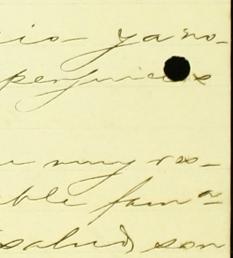 io ya no-
perjuicios
muy res-
ble fam.ª
salud, son